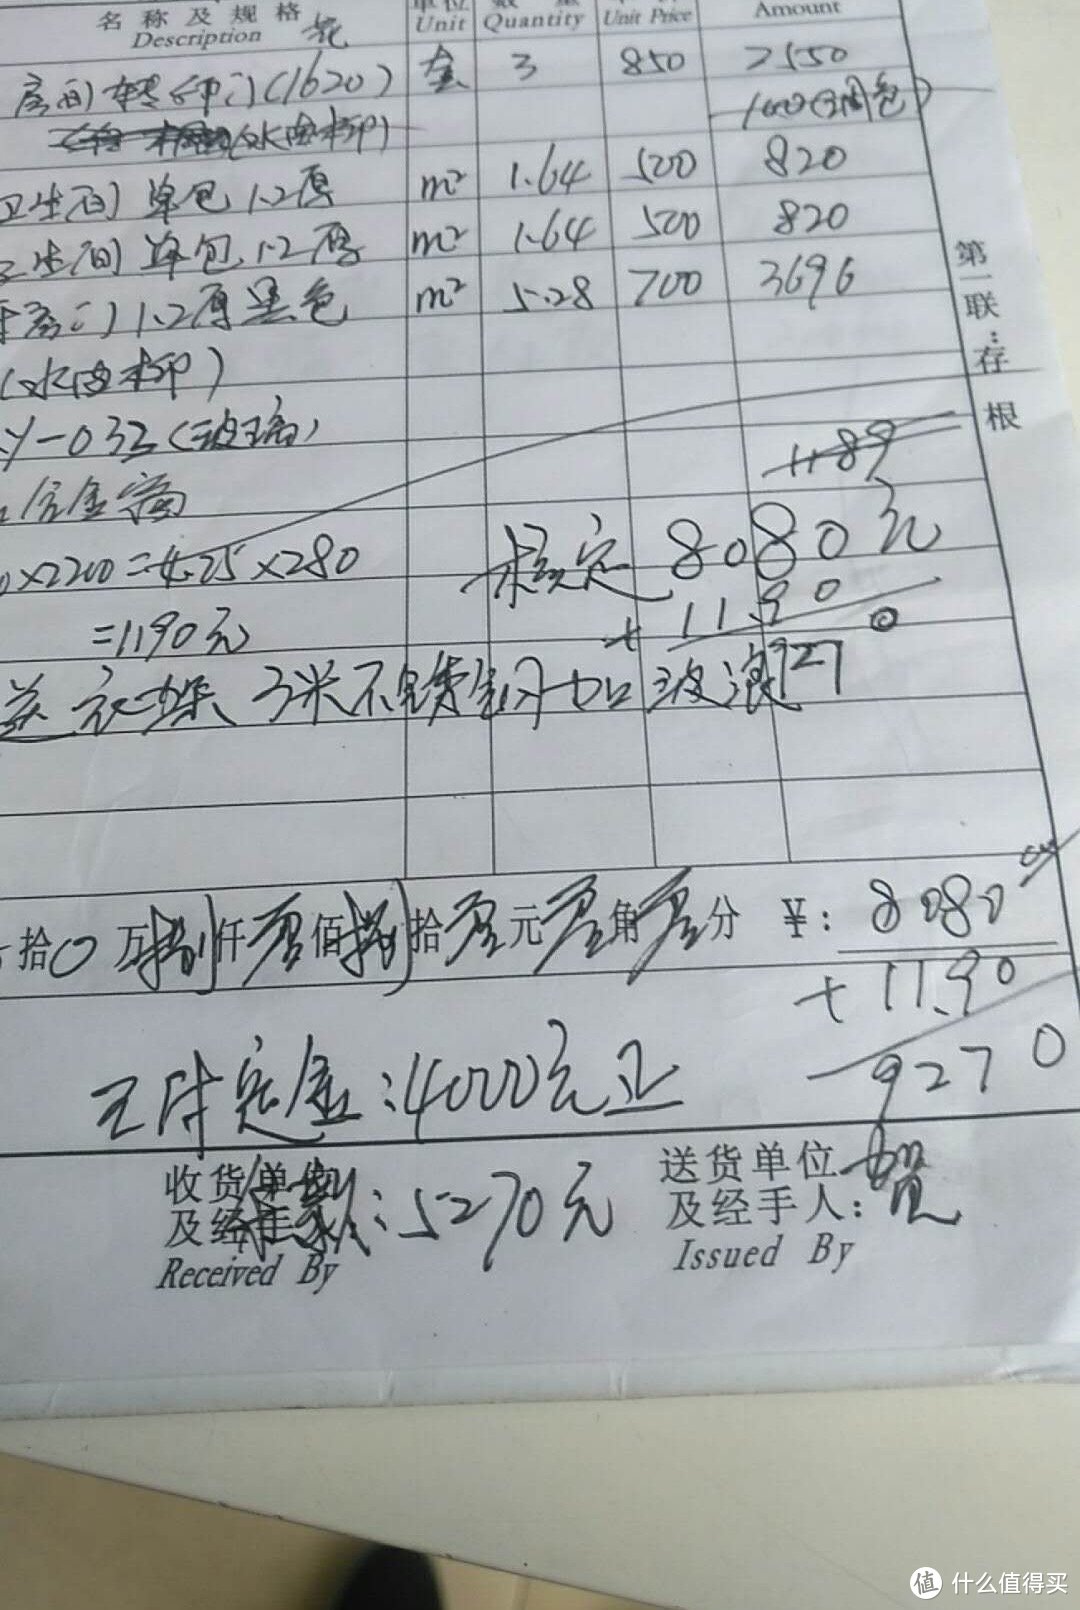 名称及规格
Description
单位 Unit
数量 Quantity
Unit Price
Amount
房间转印门(1620) 套 3 850 2550
(水曲柳) 100(调色)
卫生间单包1.2厚 m² 1.64 500 820
卫生间单包1.2厚 m² 1.64 500 820
房门1.2厚黑色 m² 5.28 700 3696
(水曲柳)
Y-033(玻璃)
1189
×2200=4.25×280 核定8080元
=1190元 +1190
送衣架3米不锈钢 加波浪 927
0
第一联:存根
拾0万捌仟零佰捌拾零元零角零分 ¥:8080
+1190
9270
已付定金:4000元正
收货单位
及经手 :5270元
Received By
送货单位
及经手人:
Issued By
值 什么值得买